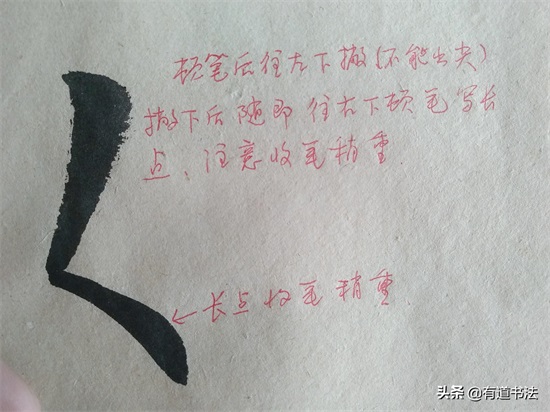 顿笔后往左下撇(不能出尖)
撇下后随即往右下顿笔写长
点、注意收笔稍重
←长点收笔稍重
头条 @有道书法